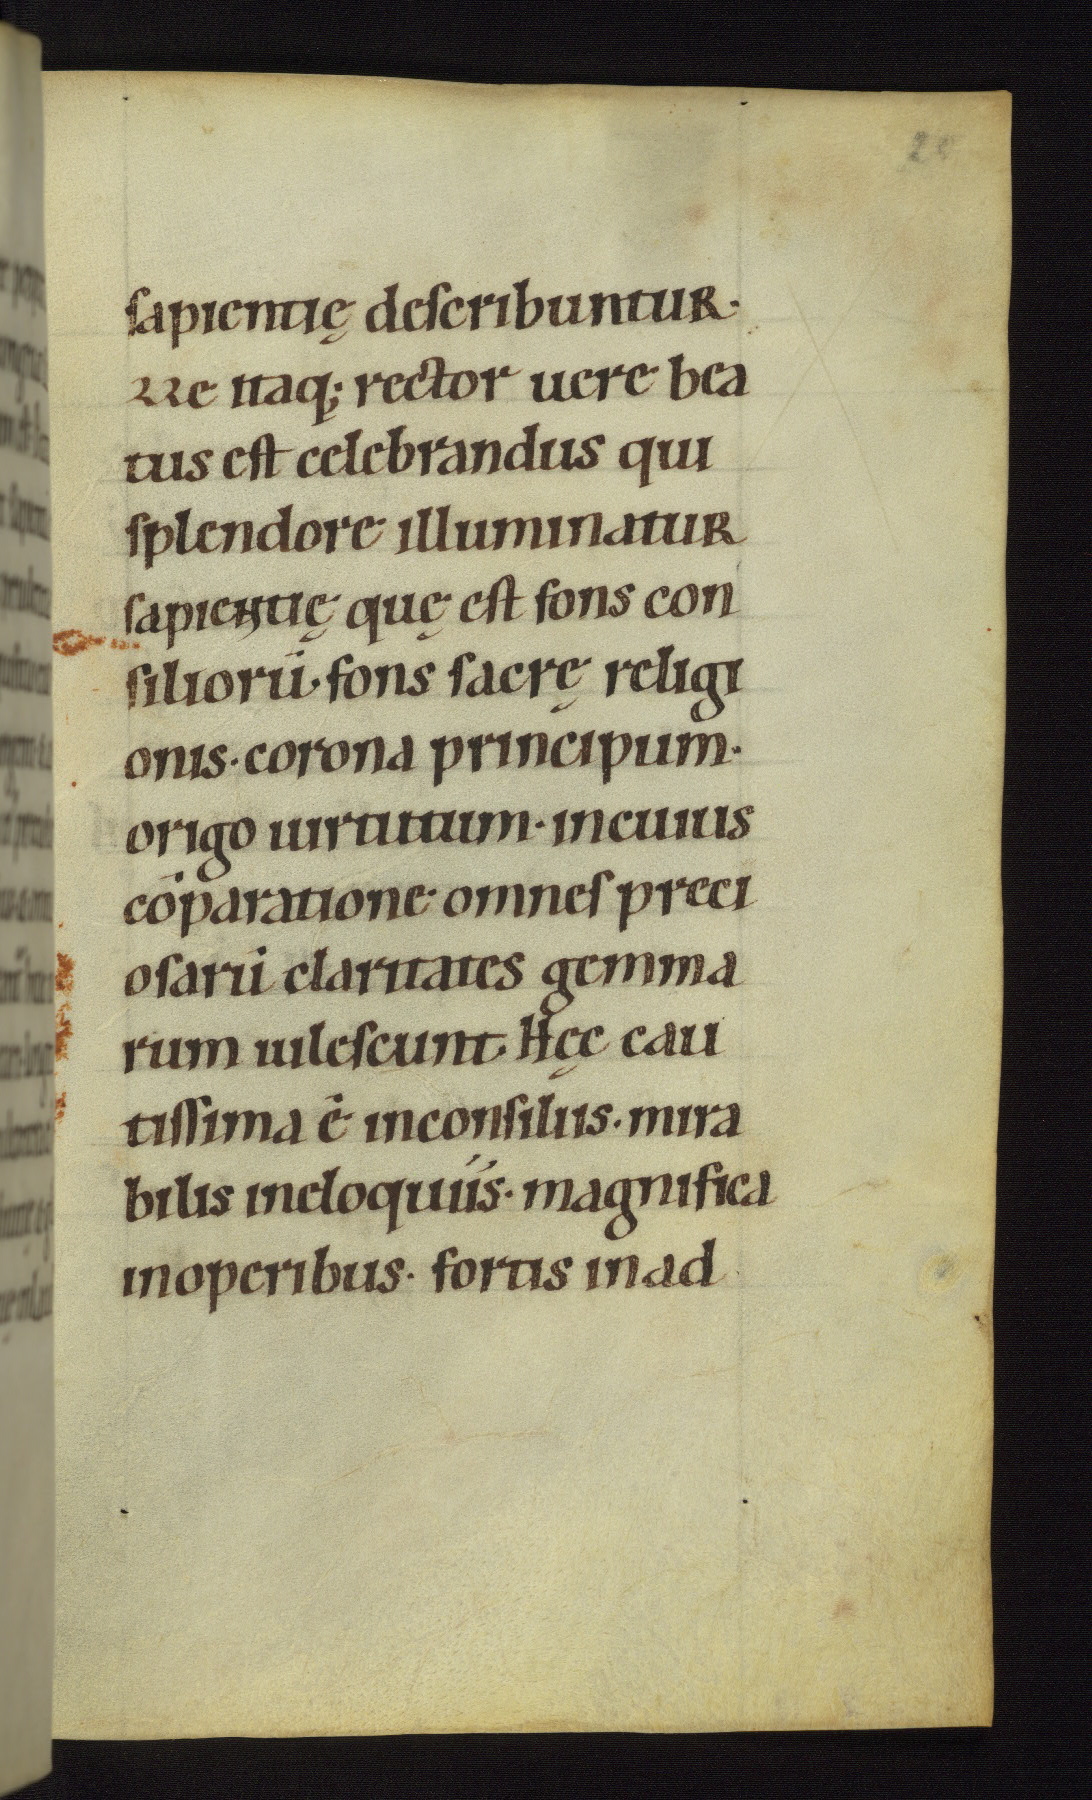 sapientię describuntur.
Re itaq; rector uere bea
tus est celebrandus qui
splendore illuminatur
sapientię quę est fons con
siliorū. fons sacrę religi
onis. corona principum.
origo uirtutum. incuius
cōparatione omnes preci
osarū claritates gemma
rum uilescunt. Hęc cau
tissima ē inconsiliis. mira
bilis ineloquiis. magnifica
inoperibus. fortis inad